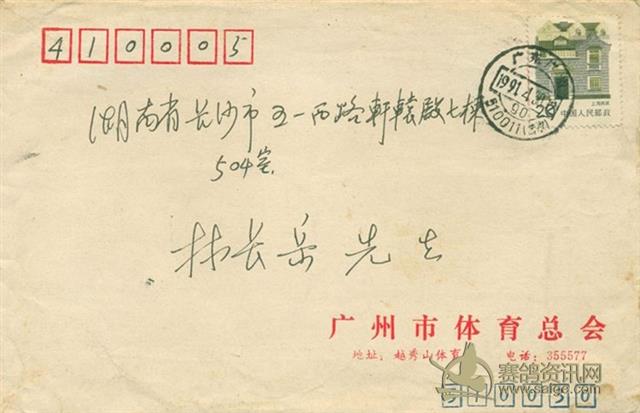 410005
湖南省长沙市五一西路軒轅殿七棟
504室
林长岳 先生
广东广
1991.4
510011(51)
20
上海民居
中国人民邮政
广州市体育总会
地址：越秀山体育 电话：355577
赛鸽资讯网
www.saige.com
510030